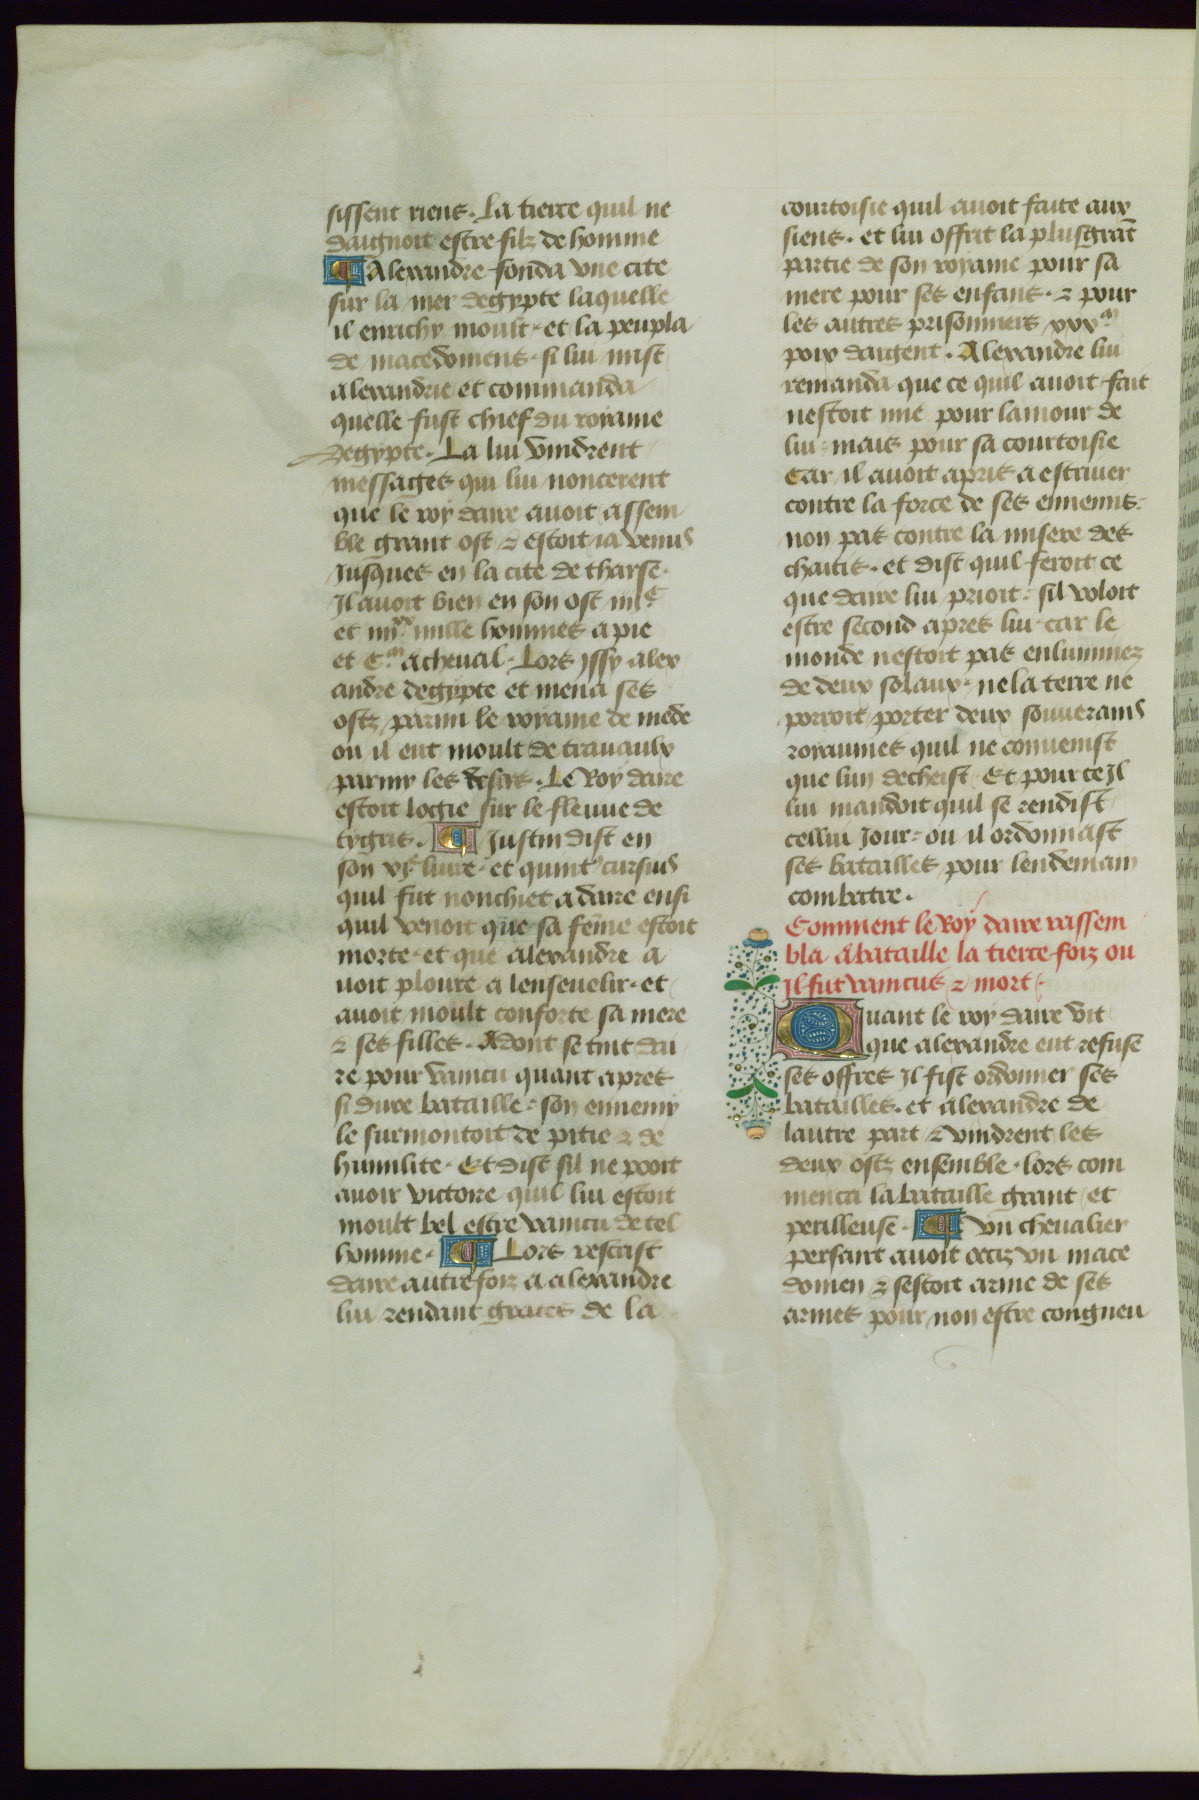 sissent riens. La tierce quil ne
daignoit estre filz de homme
¶ Alexandre fonda vne cite
sur la mer degypte laquelle
il enrichy moult. et la peupla
de macedoniens. si lui mist
alexandrie et commanda
quelle fust chief du royame
degypte. La lui vindrent
messages qui lui noncerent
que le roy daire auoit assem
ble grant ost ⁊ estoit ia venus
iusques en la cite de tharse.
Il auoit bien en son ost iiiiᶜ
et iiiiˣˣ mille hommes a pie
et C.ᵐ a cheual. Lors yssy alex
andre degypte et mena ses
ostz parmi le royame de mede
ou il eut moult de trauaulx
parmy les desers. Le Roy daire
estoit logie sur le fleuue de
tygris. ¶ Iustin dist en
son xjᵉ liure. et quint cursus
quil fut nonchiet a daire ensi
quil venoit que sa fēme estoit
morte. et que alexandre a
uoit ploure a lenseuelir. et
auoit moult conforte sa mere
⁊ ses filles. Adont se tint dai
re pour vaincu quant apres
si dure bataille. son ennemy
le surmontoit de pitie ⁊ de
humilite. Et dist sil ne pooit
auoir victoire quil lui estoit
moult bel estre vaincu de tel
homme. ¶ Lors rescrist
daire autrefoiz a alexandre
lui rendant graces de la
courtoisie quil auoit faite aux
siens. et lui offrit la plus grāt
partie de son royame pour sa
mere pour ses enfans. ⁊ pour
les autres prisonniers xxxᵐ
poix dargent. Alexandre lui
remanda que ce quil auoit fait
nestoit mie pour lamour de
lui. mais pour sa courtoisie
Car il auoit apris a estriuer
contre la force de ses ennemis.
non pas contre la misere des
chaitis. et dist quil feroit ce
que daire lui prioit. sil voloit
estre second apres lui. car le
monde nestoit pas enluminez
de deux solaux. ne la terre ne
porroit porter deux souuerains
royaumes quil ne conuenist
que lun decheist. Et pour ce Il
lui mandoit quil se rendist
cellui Jour. ou il ordonnast
ses batailles pour lendemain
combatre.
Comment le Roy daire rassem
bla a bataille la tierce foiz ou
Il fut vaincus ⁊ mort
Quant le roy daire vit
que alexandre eut refuse
ses offres Il fist ordonner ses
batailles. et alexandre de
lautre part ⁊ vindrent les
deux ostz ensemble. lors com
menca la bataille grant et
perilleuse. ¶ Vn cheualier
persant auoit occiz vn mace
donien ⁊ sestoit arme de ses
armes pour non estre congneu